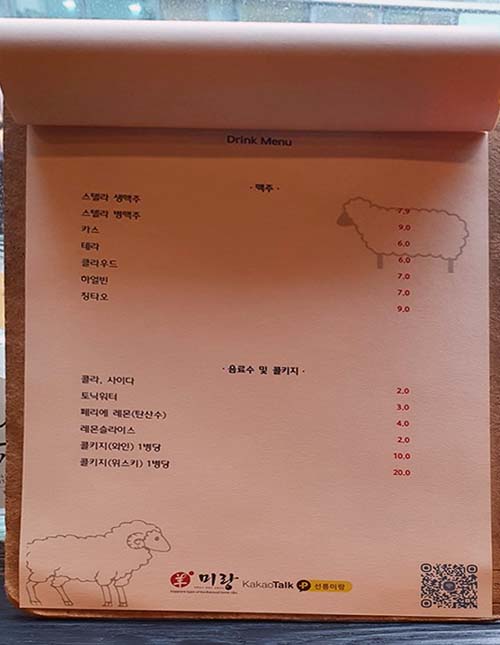 Drink Menu
· 맥주 ·
스텔라 생맥주 7.9
스텔라 병맥주 9.0
카스 6.0
테라 6.0
클라우드 7.0
하얼빈 7.0
칭타오 9.0
· 음료수 및 콜키지 ·
콜라, 사이다 2.0
토닉워터 3.0
페리에 레몬(탄산수) 4.0
레몬슬라이스 2.0
콜키지(와인) 1병당 10.0
콜키지(위스키) 1병당 20.0
羊 미랑 KakaoTalk 선릉미랑